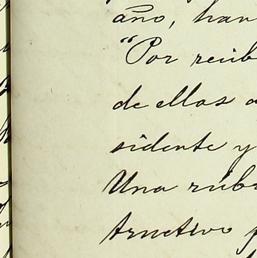 año, han
"Por recib
de ellas a
sidente y
Una rúb
tructivo